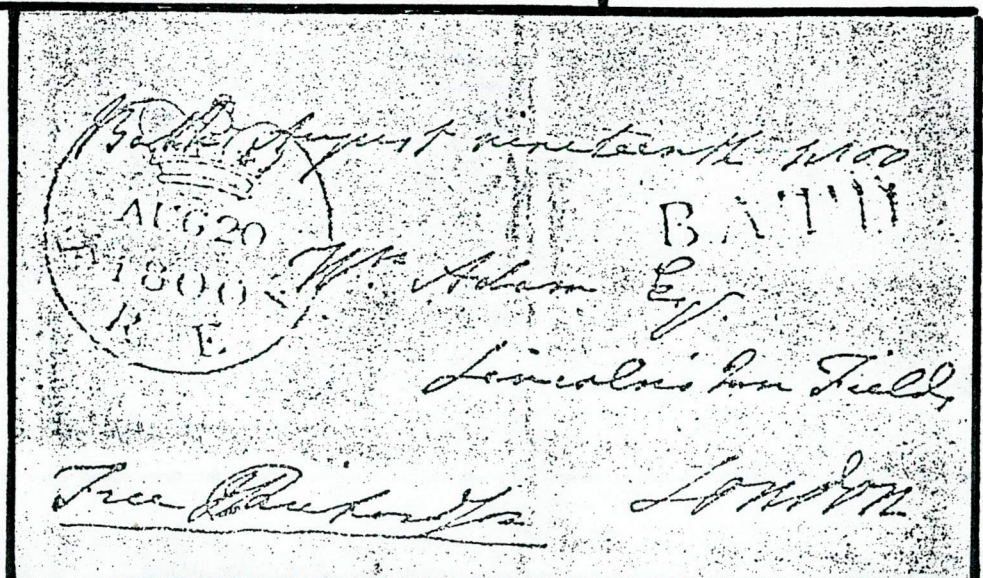 Bath August nineteenth 1800
BATH
AUG 20
1800
F R E E
Wm. Adam Esq.
Lincoln's Inn Fields
London
Free